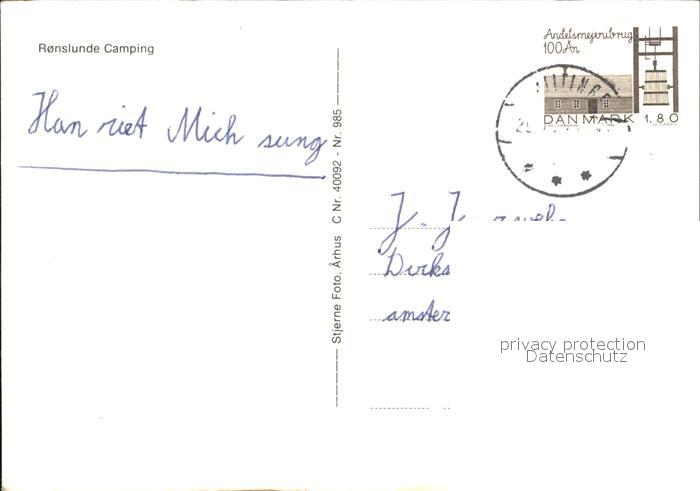 Rønslunde Camping
Andelsmejeribrug
100 År
DANMARK 1.80
Han riet Mich sung
Stjerne Foto, Århus C Nr. 40092 - Nr. 985
J. J
Dirks
amster
privacy protection
Datenschutz